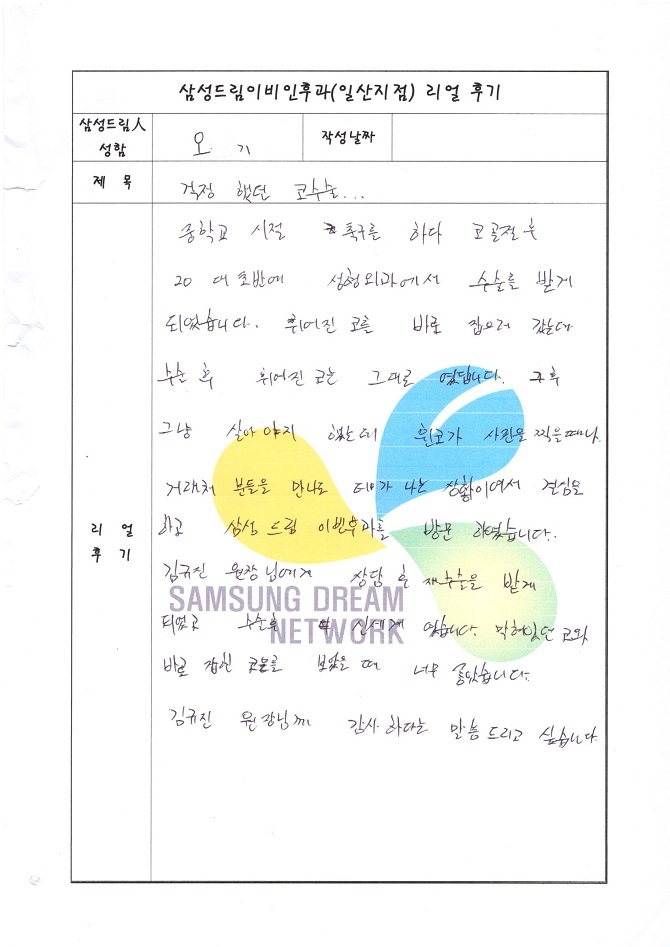 삼성드림이비인후과(일산지점) 리얼 후기
삼성드림人 성함
오 기
작성날짜
제 목
걱정 했던 코수술...
리 얼 후 기
중학교 시절 축구를 하다 코골절후
20 대 초반에 성형외과에서 수술를 받게
되었습니다. 휘어진 코를 바로 잡으러 갔는데
수술 후 휘어진 코는 그대로 였답니다. 그후
그냥 살아야지 했는데 휜코가 사진을 찍을때나
거래처 분들을 만나도 티가 나는 상황이여서 결심을
하고 삼성 드림 이빈후과를 방문 하였습니다.
김규진 원장님에게 상담 후 재수술을 받게
되었고 수술후 신세계 였습니다. 막혀있던 코와
바로 잡힌 코를 보았을 때 너무 좋았습니다.
김규진 원장님께 감사하다는 말씀드리고 싶습니다.
SAMSUNG DREAM
NETWORK